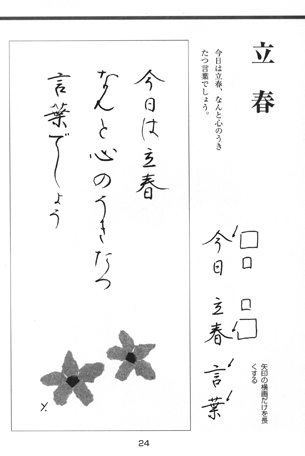 立春
今日は立春、なんと心のうき
たつ言葉でしょう。
今日は立春
なんと心のうきたつ
言葉でしょう
Y.
今日 立春 言葉
矢印の横画だけを長
くする
24